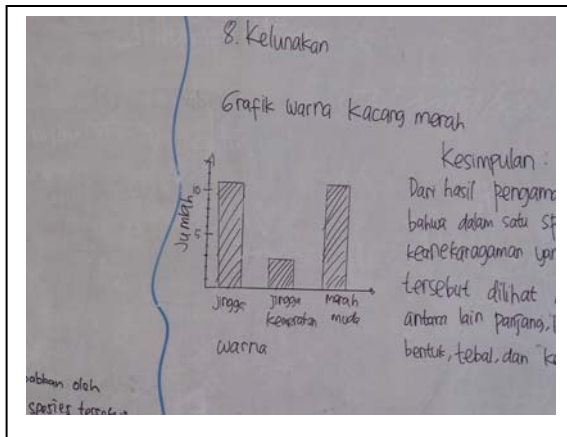 8. Kelunakan
Grafik warna kacang merah
Jumlah
10
5
jingga
jingga
merah
muda
warna
Kesimpulan :
Dari hasil pengama
bahwa dalam satu sp
keanekaragaman yan
tersebut dilihat
antara lain panjang,
bentuk, tebal, dan
babkan oleh
spesies